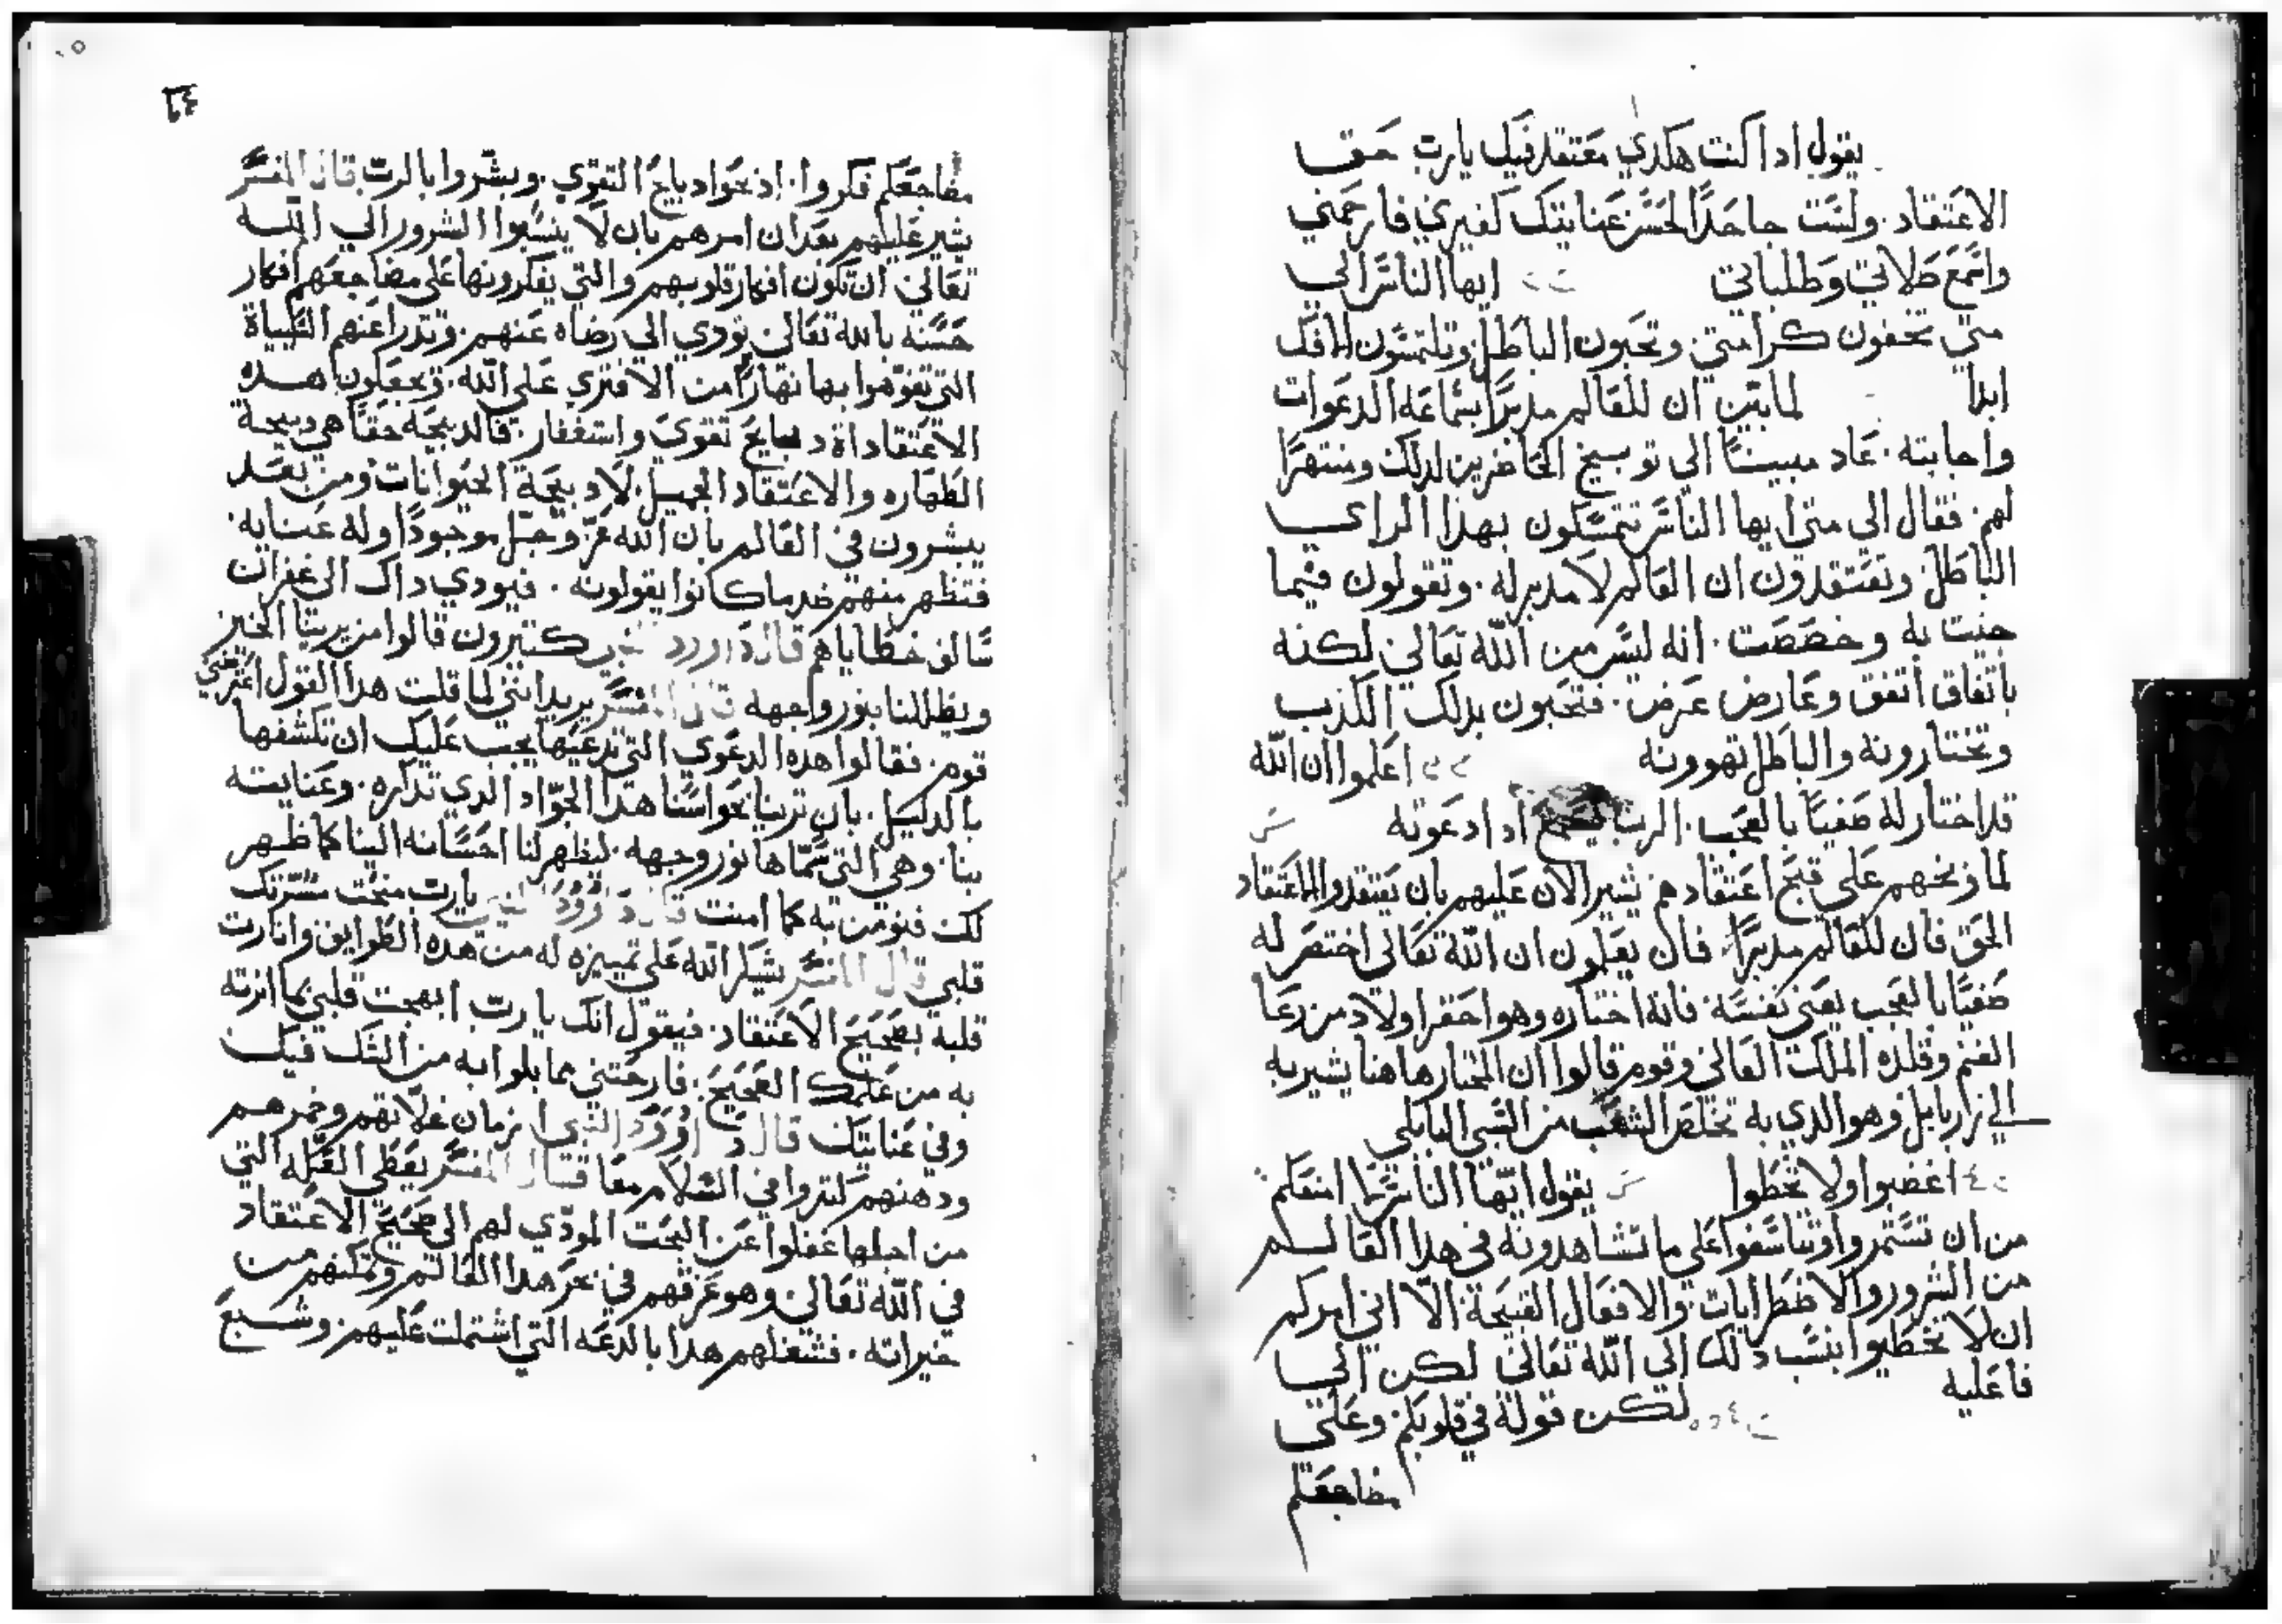 يقول اداكنت هكدي معتقد فيك يارب حق
الاعتقاد. ولست جاحدًا لحسن عنايتك كغيري فارحمني
واسمع صلاتي وطلباتي ايها الناس الي
متي تخفون كرامتي. وتحبون الباطل وتلتمسون الافك
ابدا لما بين ان للعالم مدبرًا بسماعه الدعوات
واجابته. عاد مبينًا الي توبيخ الحاضرين لدلك ومنتهرًا
لهم. فقال الي متي ايها الناس تتمسكون بهدا الراي
الباطل وتعتقدون ان العالم لا مدبر له. وتقولون فيما
جيت به وخصصت. انه ليس من الله تعالي لكنه
باتفاق اتفق وعارض عرض. فتحبون بدلك الكذب
وتختارونه والباطل تهوونه اعلموا ان الله
قد اختار له صفيًا بالعجب. الرب يسمع اد ادعوته
لما وبخهم علي قبح اعتقادهم يشير الان عليهم بان يعتقدوا الاعتقاد
الحق فان للعالم مدبرًا. فان يعلمون ان الله تعالي اختصر له
صفيًا بالعجب يعني نفسه. فانه اختاره وهو احقر اولاد من رعا
الغنم وقلده الملك العالي وقوم قالوا ان المختار هاهنا يشير به
الي زاربابل وهو الدي به تخلص الشعب من السبي البابلي
اغضبوا ولا تخطوا يقول ايها الناس ما امنعكم
من ان تستمروا وتتاسفوا علي ما تشاهدونه في هدا العالم
من الشرور والاضطرابات والافعال القبيحة الا اني امركم
ان لا تخطيوا بنسب دلك الي الله تعالي لكن الي
فاعليه لكن قولة في قلوبكم. وعلي
مضاجعكم
٤٦
مضاجعكم فكروا. اذبحوا دبايح التقوي. وبشروا بالرب قال المفسر
يشير عليهم بعد ان امرهم بان لا ينسبوا الشرور الي الله
تعالي ان تكون افكار قلوبهم والتي يفكرونها علي مضاجعهم افكار
حسنه بالله تعالي تودي الي رضاه عنهم. وتدرا عنهم
التي تفوهوا بها نهارًا من الافتري علي الله. وتجعلون هده
الاعتقاداة دبايح تقوي واستغفار. فالدبيحه حقًا هي دبيحة
الطهاره والاعتقاد الجميل. لا دبيحة الحيوانات ومن بعد
يبشرون في العالم بان الله عز وجل موجودًا وله عنايه.
فتظهر منهم ضد ما كانوا يقولونه. فيودي داك الي غفران
سالف خطاياهم قال داوود كتيرون قالوا من يرينا الخير
ويظل لنا بنور واجهه قال المفسر يريد انني لما قلت هدا القول اعترضني
قوم. فقالوا هده الدعوي التي تدعيها يجب عليك ان تكشفها
بالدليل. بان ترينا بحواسنا هدا الجواد الدي تداكره. وعنايته
بنا. وهي التي سماها نور وجهه. ليظهر لنا احسانه الينا كما ظهر
لك فنومن به كما امنت قال داوود النبي يارب منحت مسرتك
قلبي قال المفسر يشكر الله علي تمييزه له من هده الطوايف وانارت
قلبه بصحيح الاعتقاد. فيقول انك يا رب ابهجت قلبي بما انرته
به من علمك الصحيح. فارحتني مما بلوا به من الشك فيك
وفي عنايتك قال داوود النبي ا زمان غلاتهم وخمرهم
ودهنهم كتروا في السلام معا قال المفسر يعطي العله التي
من اجلها غفلوا عن البحت المودي لهم الي صحيح الاعتقاد
في الله تعالي وهو غرقهم في بحر هدا العالم وتمكنهم من
خيراته. فشغلهم هدا بالدعه التي اشتملت عليهم. وشبع